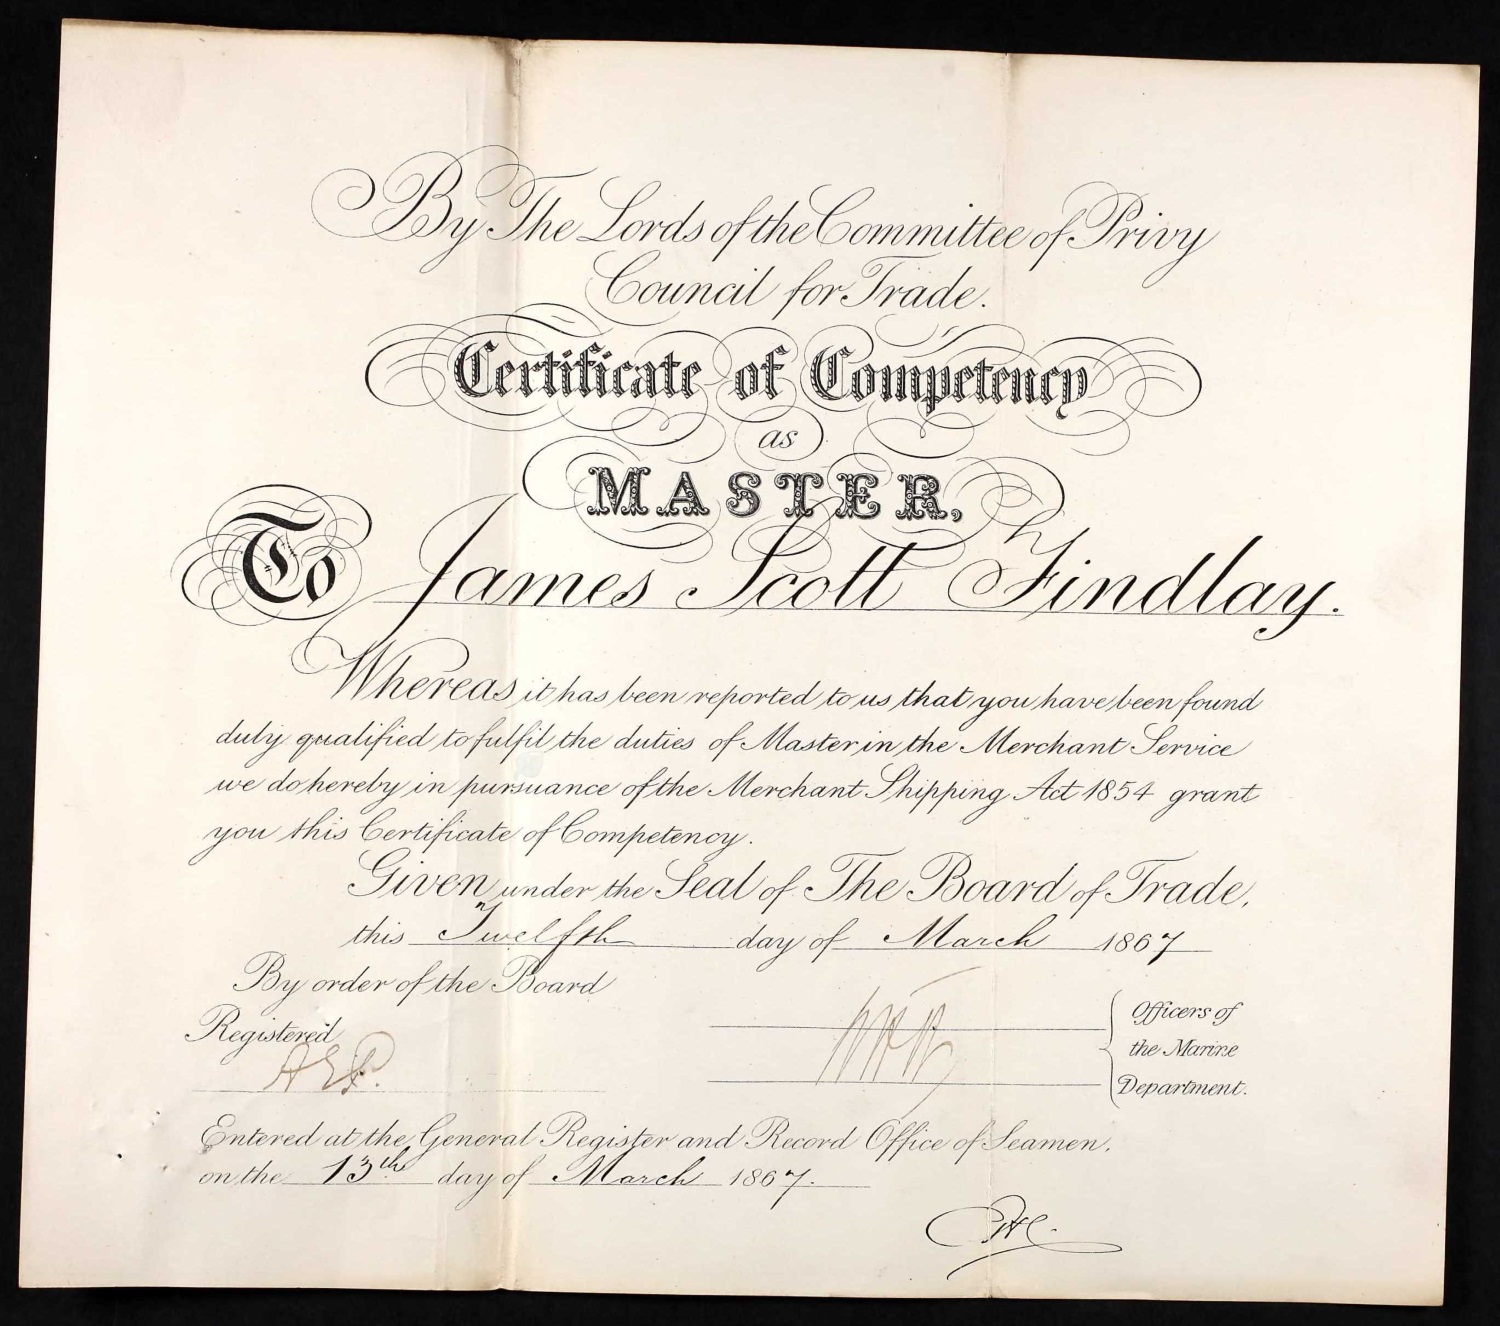 By The Lords of the Committee of Privy
Council for Trade.
Certificate of Competency
as
MASTER,
To James Scott Findlay.
Whereas it has been reported to us that you have been found
duly qualified to fulfil the duties of Master in the Merchant Service
we do hereby in pursuance of the Merchant Shipping Act 1854 grant
you this Certificate of Competency.
Given under the Seal of The Board of Trade,
this Twelfth day of March 1867
By order of the Board
Registered
Officers of
the Marine
Department.
Entered at the General Register and Record Office of Seamen.
on the 13th day of March 1867.